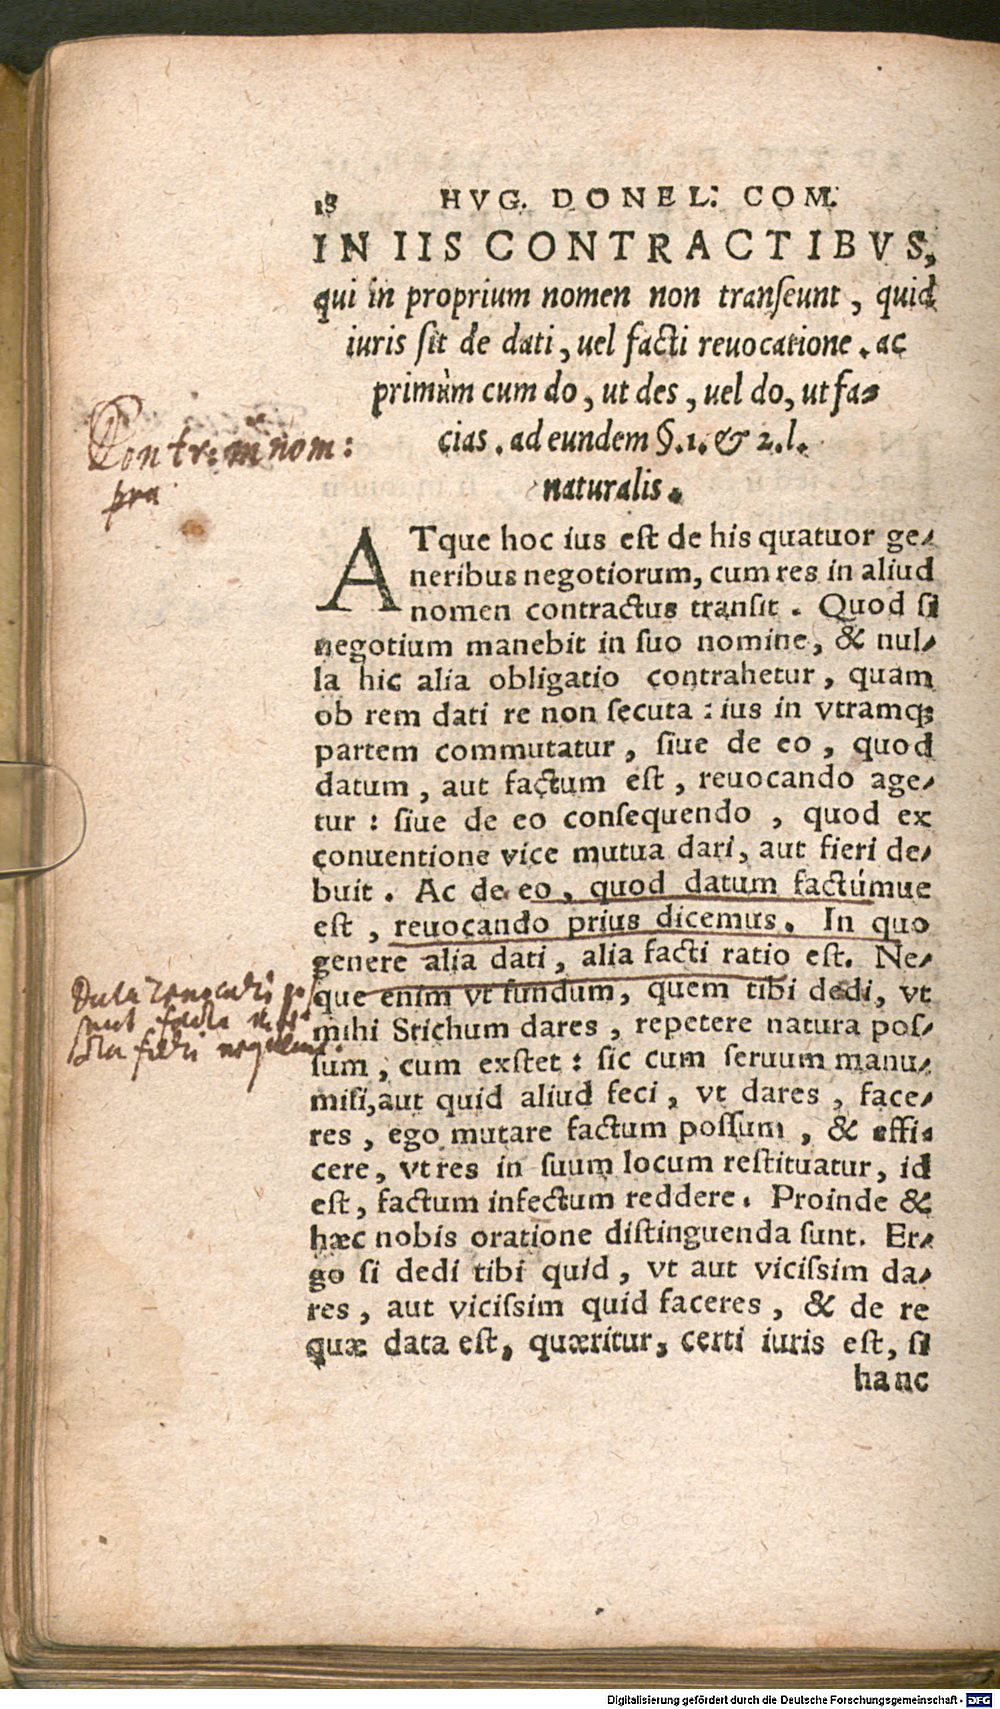 18 HVG. DONEL: COM.
IN IIS CONTRACTIBVS,
qui in proprium nomen non tranſeunt, quid
iuris ſit de dati, uel facti reuocatione. ac
primùm cum do, ut des, uel do, ut fa-
cias. ad eundem §.1. & 2. l.
naturalis.
Contr: in nom:
pra
ATque hoc ius eſt de his quatuor ge-
neribus negotiorum, cum res in aliud
nomen contractus tranſit. Quod ſi
negotium manebit in ſuo nomine, & nul-
la hic alia obligatio contrahetur, quam
ob rem dati re non ſecuta: ius in vtramq;
partem commutatur, ſiue de eo, quod
datum, aut factum eſt, reuocando age-
tur: ſiue de eo conſequendo, quod ex
conuentione vice mutua dari, aut fieri de-
buit. Ac de eo, quod datum factúmue
eſt, reuocando prius dicemus. In quo
genere alia dati, alia facti ratio eſt. Ne-
que enim vt fundum, quem tibi dedi, vt
mihi Stichum dares, repetere natura poſ-
ſum, cum exſtet: ſic cum ſeruum manu-
miſi, aut quid aliud feci, vt dares, face-
res, ego mutare factum poſſum, & effi-
cere, vt res in ſuum locum reſtituatur, id
eſt, factum infectum reddere. Proinde &
hæc nobis oratione diſtinguenda ſunt. Er-
go ſi dedi tibi quid, vt aut viciſsim da-
res, aut viciſsim quid faceres, & de re
quæ data eſt, quæritur, certi iuris eſt, ſi
hanc
Data
facta
Digitalisierung gefördert durch die Deutsche Forschungsgemeinschaft - DFG